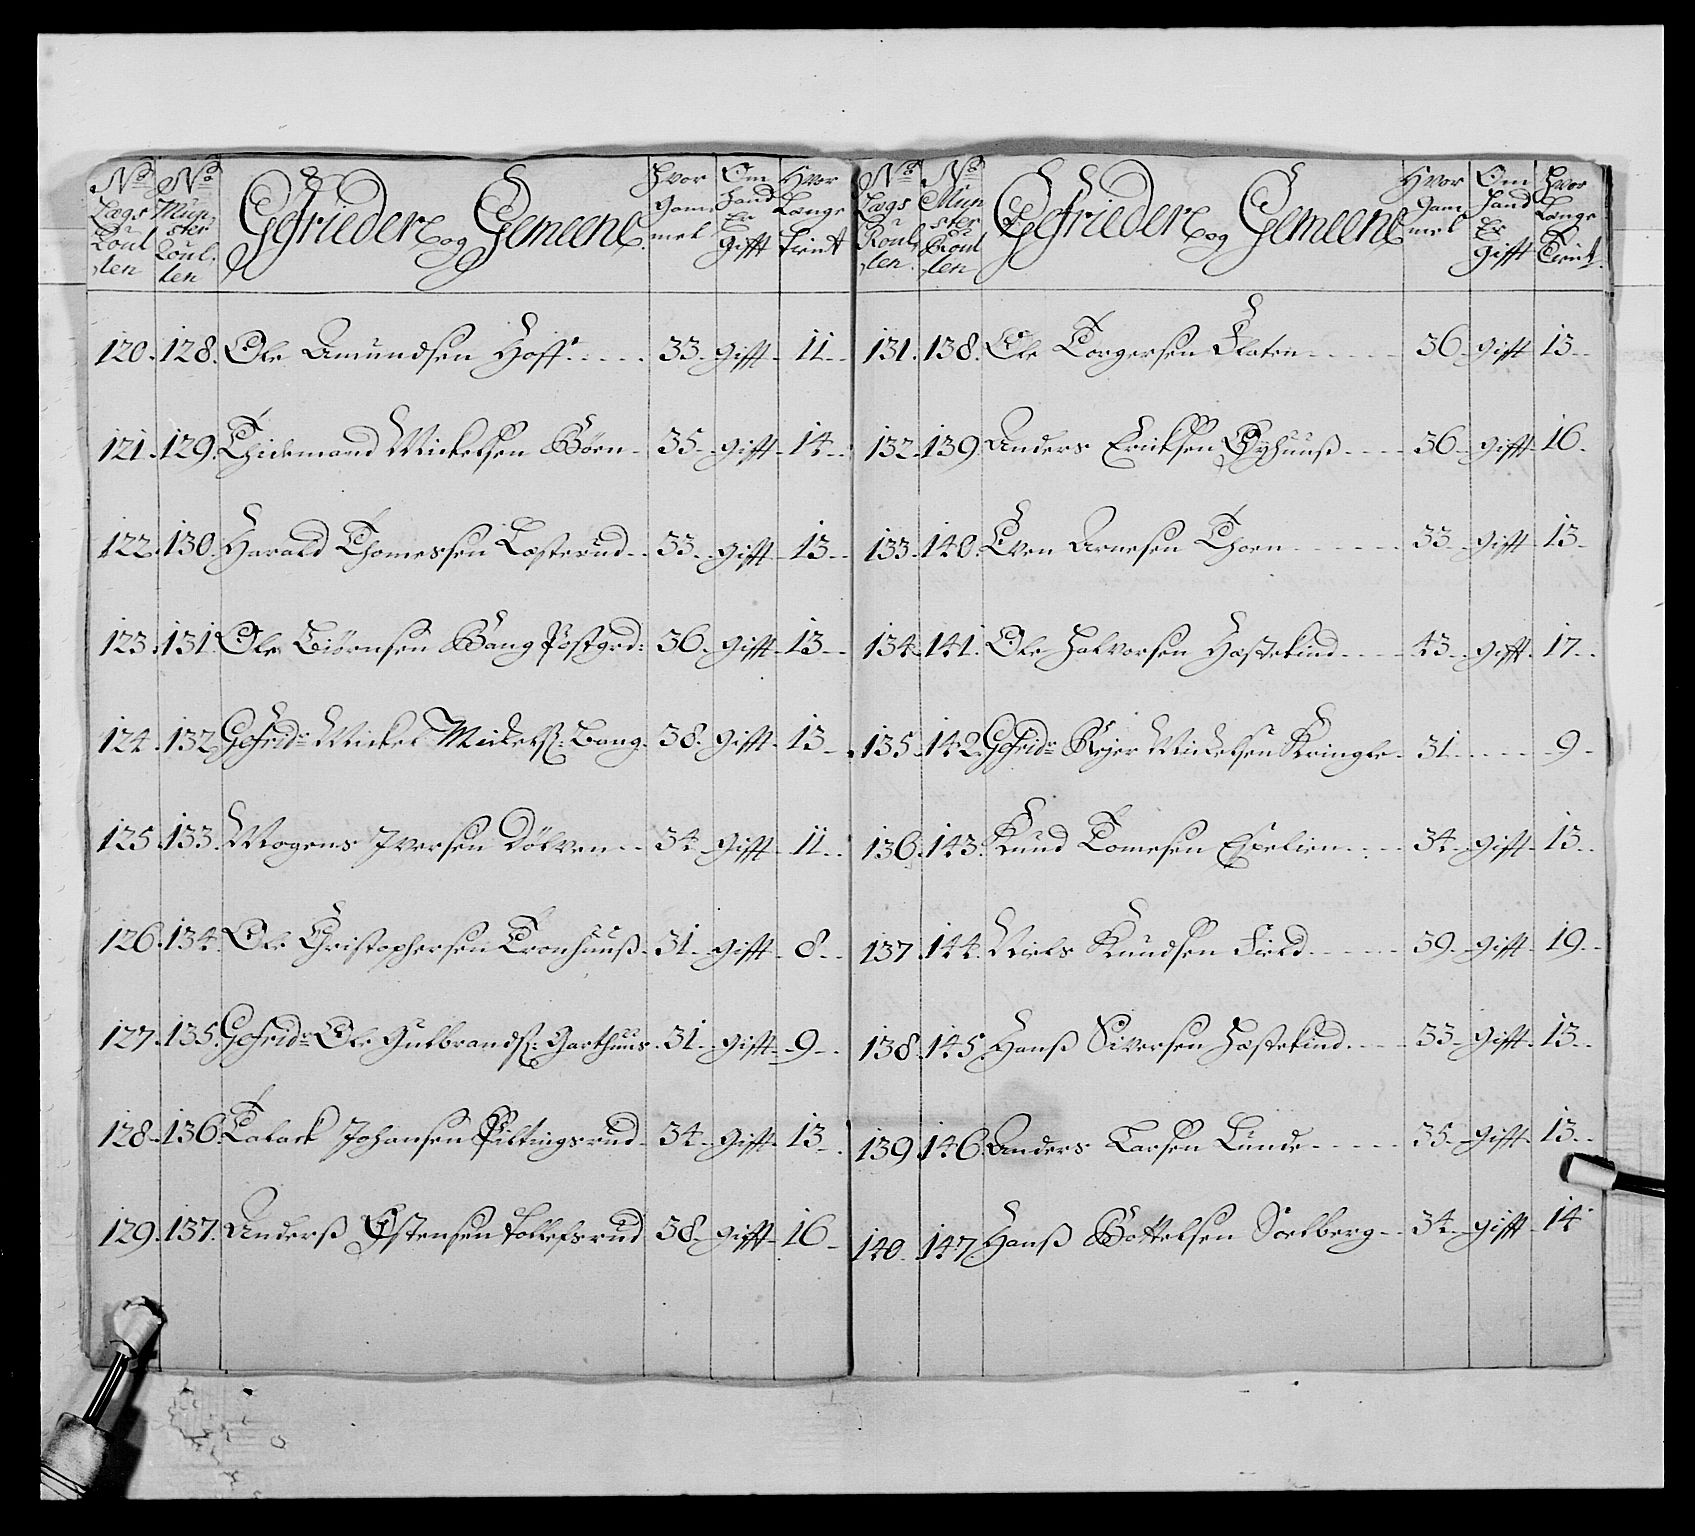 No Lægs Roullen No Mün ster Roul len Gefrieder og Gemeene Hvor Gam mel Om Hand Er Gifft Hvor Lange Tient
120. 128. Ole Amundsen Hoff 33 gifft 11
121. 129. Thidemand Mickelsen Börn 35 gifft 14
122. 130. Harald Thomessen Losterud 33 gifft 13
123. 131. Ole Biörnsen Bang Pöstgrd: 36 gifft 13
124. 132 Gefrid: Mickel Mickels: Bang 38 gifft 13
125. 133. Mogens Iversen Dölven 34 gifft 11
126. 134. Ole Christophersen Tronhuuß 31 gifft 8
127. 135. Gefrid: Ole Gulbrands: Garthuus 31 gifft 9
128. 136. Talack Johansen Piltingsrud 34 gifft 13
129. 137. Anderß Östensen Tollefsrud 38 gifft 16
No Lægs Roul len No Mün ster Roul len Gefrieder og Gemeene Hvor Gam mel Om Hand Er Gifft Hvor Lange Tient
131. 138. Ole Torgersen Flaten 36 gifft 13
132. 139. Anders Ericksen Byhuuß 36 gifft 16
133. 140. Even Arnesen Thoen 33 gifft 13
134. 141. Ole Halvorsen Hæstekind 43 gifft 17
135. 142. Gefrid: Röjer Mickelsen Kringle 31 9
136. 143. Knud Tomesen Espelien 34 gifft 13
137. 144. Niels Knudsen Field 39 gifft 19
138. 145. Hanß Siversen Hæstekind 33 gifft 13
139. 146. Anders Larsen Lunde 35 gifft 13
140. 147. Hanß Bottelsen Soelberg 34 gifft 14